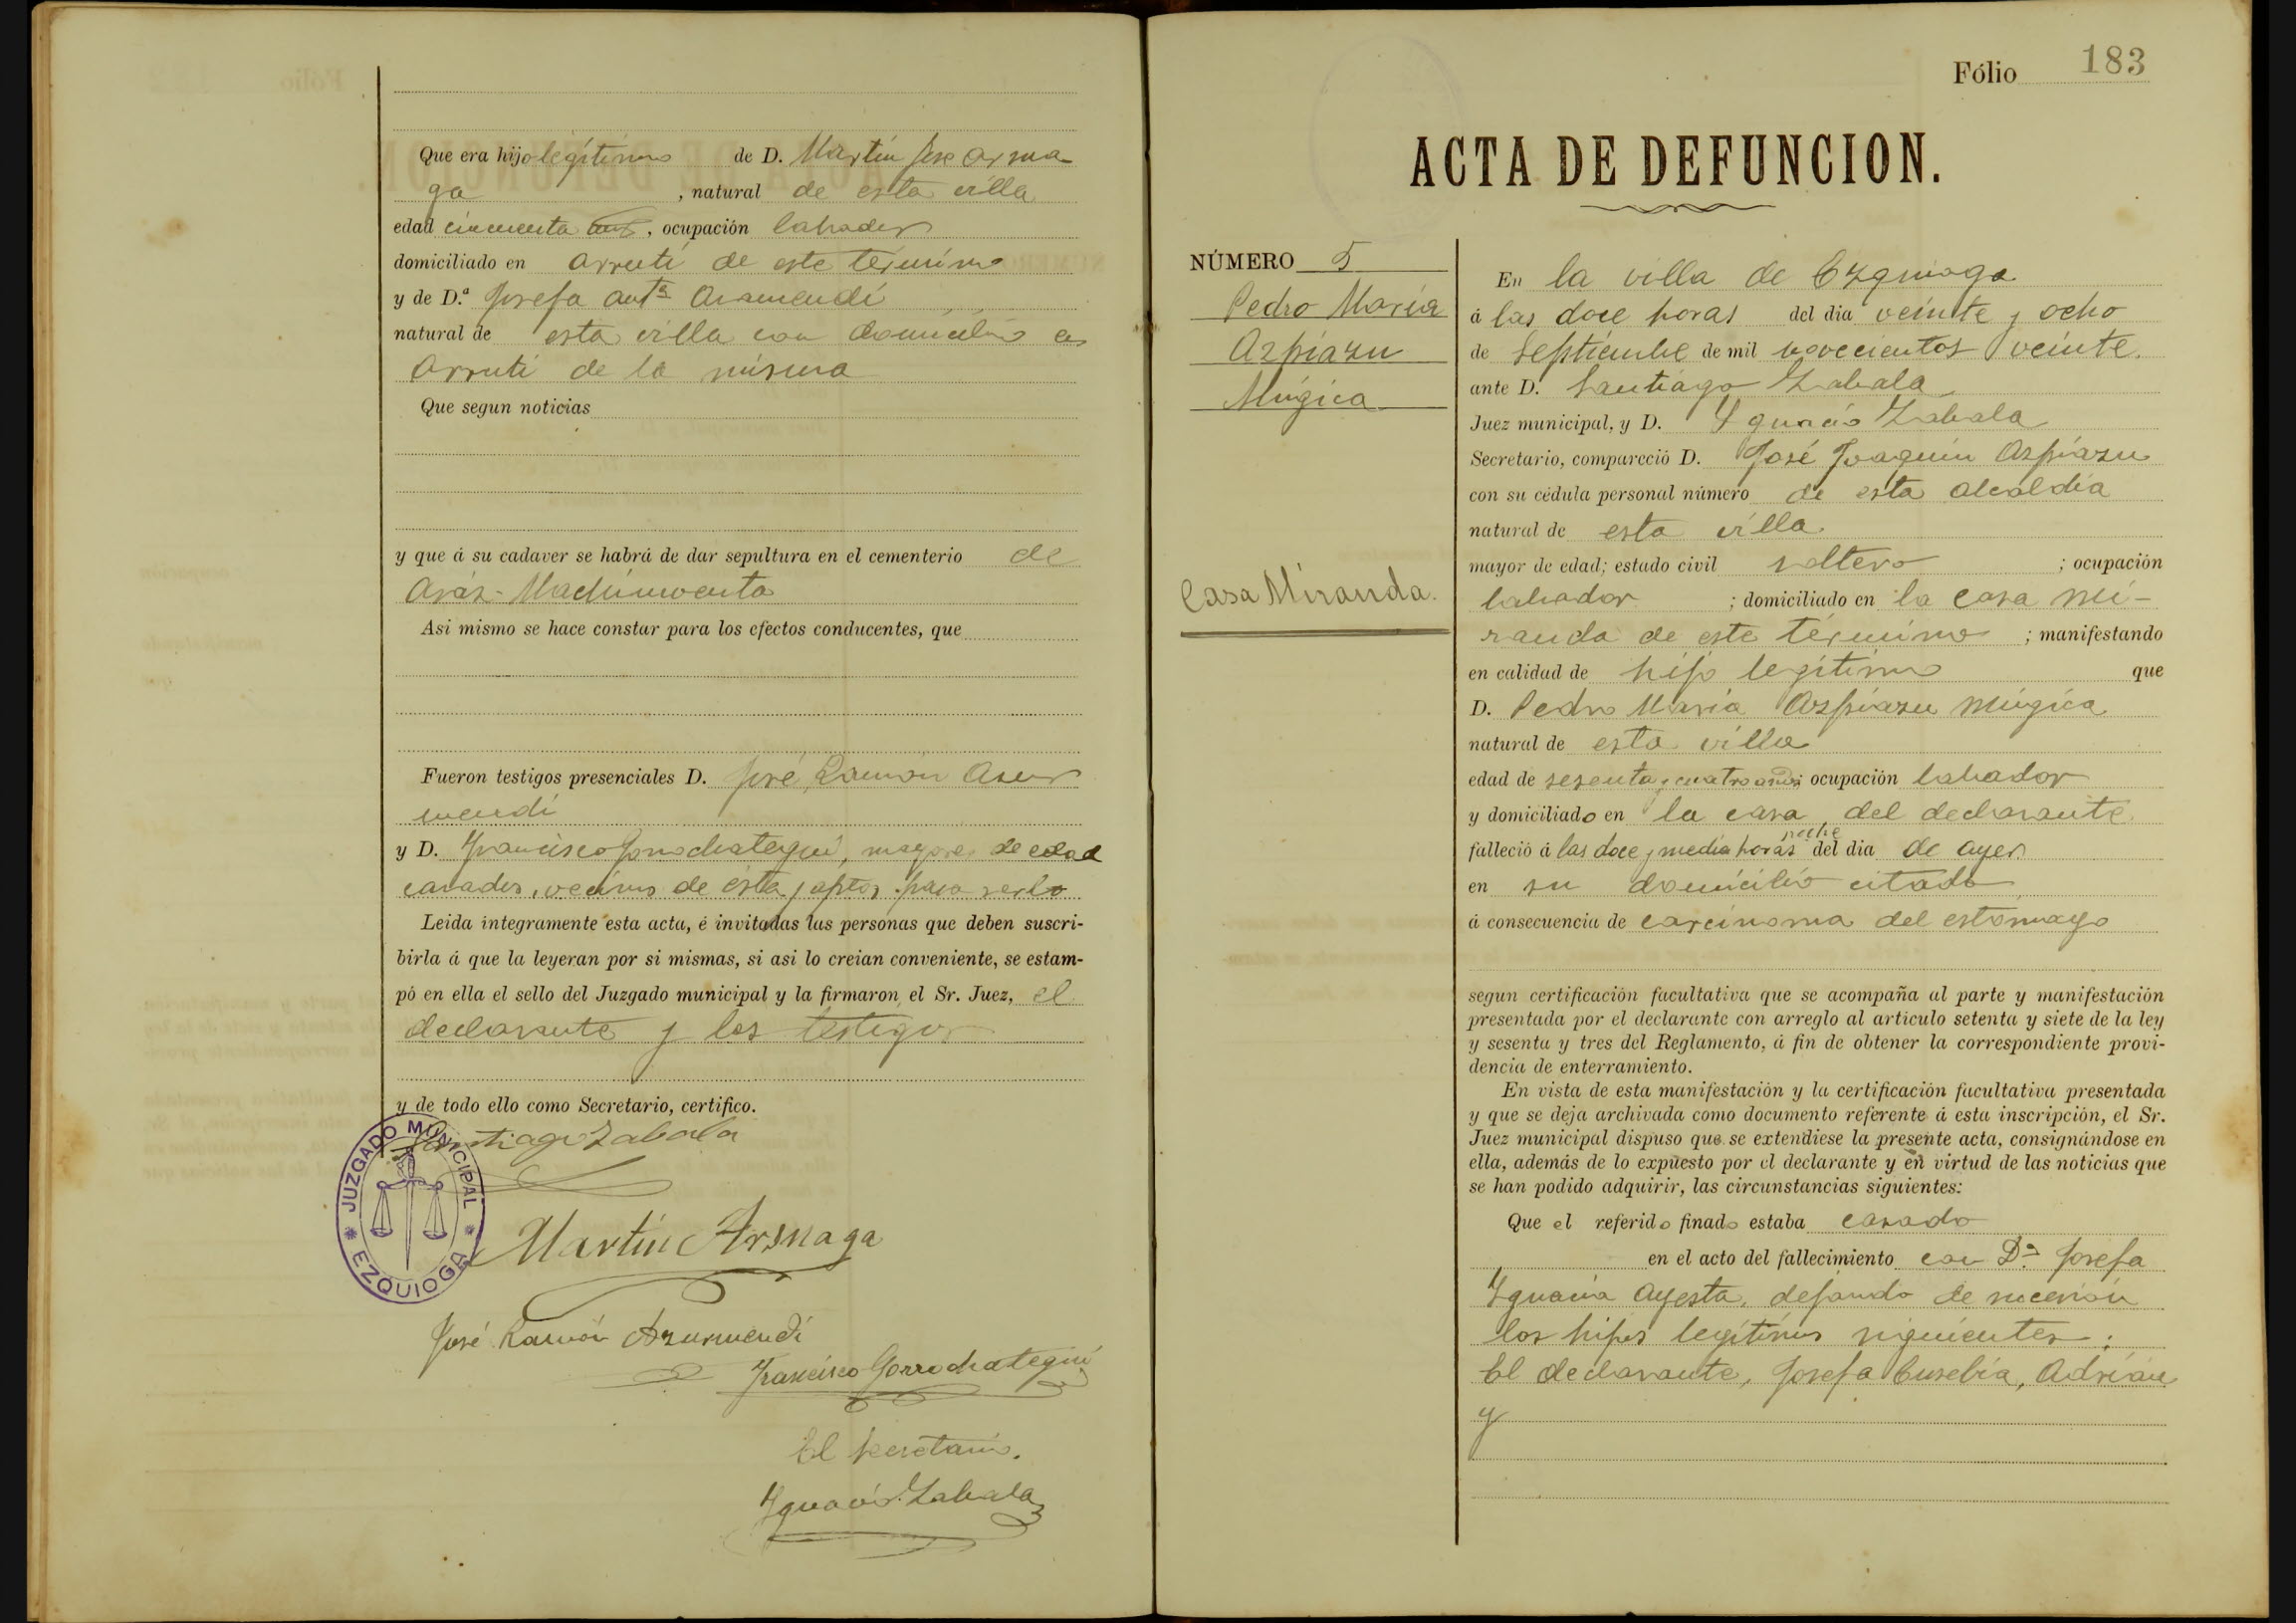 Que era hijo legítimo de D. Martín José Arsua-
ga , natural de esta villa
edad cincuenta años, ocupación labrador
domiciliado en Arruti de este término
y de D.ª Josefa Antª Aramendi
natural de esta villa con domicilio en
Arruti de la misma
Que segun noticias
y que á su cadaver se habrá de dar sepultura en el cementerio de
Aráz-Machinventa
Asi mismo se hace constar para los efectos conducentes, que
Fueron testigos presenciales D. José Ramón Azur
mendi
y D. Francisco Gorrochategui, mayores de edad
casados, vecinos de ésta y aptos para serlo
Leida integramente esta acta, é invitadas las personas que deben suscri-
birla á que la leyeran por si mismas, si asi lo creian conveniente, se estam-
pó en ella el sello del Juzgado municipal y la firmaron el Sr. Juez, el
declarante y los testigos
y de todo ello como Secretario, certifico.
Santiago Zabala
JUZGADO MUNICIPAL * EZQUIOGA *
Martín Arsuaga
José Ramón Azurmendi
Francisco Gorrochategui
El Secretario.
Ygnacio Zabala
Fólio 183
ACTA DE DEFUNCION.
NÚMERO 5
Pedro María
Azpiazu
Múgica
Casa Miranda.
En la villa de Ezquioga
á las doce horas del dia veinte y ocho
de Septiembre de mil novecientos veinte
ante D. Santiago Zabala
Juez municipal, y D. Ygnacio Zabala
Secretario, compareció D. José Joaquín Azpiazu
con su cédula personal número de esta alcaldía
natural de esta villa
mayor de edad; estado civil soltero ; ocupación
labrador ; domiciliado en la casa Mi-
randa de este término ; manifestando
en calidad de hijo legítimo que
D. Pedro María Azpiazu Múgica
natural de esta villa
edad de sesenta y cuatro años; ocupación labrador
y domiciliado en la casa del declarante
noche
falleció á las doce y media horas del dia de ayer
en su domicilio citado
á consecuencia de carcinoma del estómago
segun certificación facultativa que se acompaña al parte y manifestación
presentada por el declarante con arreglo al articulo setenta y siete de la ley
y sesenta y tres del Reglamento, á fin de obtener la correspondiente provi-
dencia de enterramiento.
En vista de esta manifestación y la certificación facultativa presentada
y que se deja archivada como documento referente á esta inscripción, el Sr.
Juez municipal dispuso que se extendiese la presente acta, consignándose en
ella, además de lo expuesto por el declarante y en virtud de las noticias que
se han podido adquirir, las circunstancias siguientes:
Que el referido finado estaba casado
en el acto del fallecimiento con Dª Josefa
Ygnacia Ayesta, dejando de sucesión
los hijos legítimos siguientes:
El declarante, Josefa Eusebia, Adrián
y